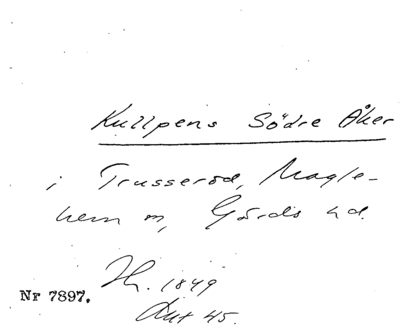 Kullpens Södre Åker
i Trusseröd, Magle-
hem sn, Gärds hd.
Hh. 1849
Nr 7897.
Akt 45.